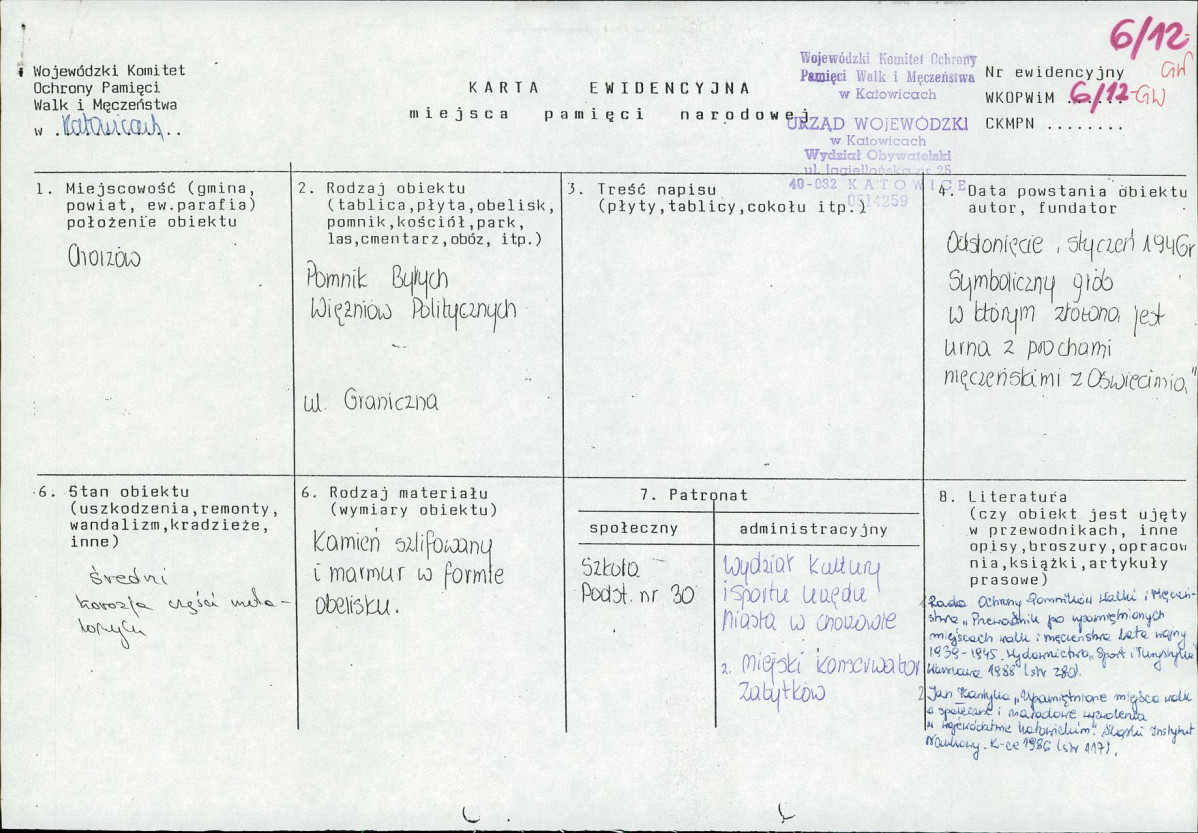 6/12-
GW
Wojewódzki Komitet
Ochrony Pamięci
Walk i Męczeństwa
w .Katowicach..
KARTA EWIDENCYJNA
miejsca pamięci narodowej
Wojewódzki Komitet Ochrony
Pamięci Walk i Męczeństwa
w Katowicach
URZĄD WOJEWÓDZKI
w Katowicach
Wydział Obywatelski
ul. Jagiellońska nr 25
40-032 KATOWICE
0514259
Nr ewidencyjny
WKOPWiM 6/12-GW
CKMPN ........
1. Miejscowość (gmina,
powiat, ew.parafia)
położenie obiektu
Chorzów
2. Rodzaj obiektu
(tablica,płyta,obelisk,
pomnik,kościół,park,
las,cmentarz,obóz, itp.)
Pomnik Byłych
Więźniów Politycznych
ul. Graniczna
3. Treść napisu
(płyty,tablicy,cokołu itp.)
4. Data powstania obiektu
autor, fundator
Odsłonięcie, styczeń 1946r
Symboliczny grób
w którym złożona jest
urna z prochami
męczeńskimi z Oświęcimia"
6. Stan obiektu
(uszkodzenia,remonty,
wandalizm,kradzieże,
inne)
średni
korozja części meta-
lowych
6. Rodzaj materiału
(wymiary obiektu)
Kamień szlifowany
i marmur w formie
obelisku.
7. Patronat
społeczny
Szkoła
Podst. nr 30
administracyjny
Wydział Kultury
i Sportu Urzędu
Miasta w Chorzowie
2. Miejski Konserwator
Zabytków
8. Literatura
(czy obiekt jest ujęty
w przewodnikach, inne
opisy,broszury,opracow
nia,książki,artykuły
prasowe)
1. Rada Ochrony Pomników Walki i Męczeń-
stwa „Przewodnik po upamiętnionych
miejscach walk i męczeństwa lata wojny
1939-1945. Wydawnictwo „Sport i Turystyka"
Warszawa 1988 (str 280).
2. Jan Kantyka „Upamiętnione miejsca walk
o społeczne i narodowe wyzwolenie
w województwie katowickim". Śląski Instytut
Naukowy. K-ce 1986 (str 117).